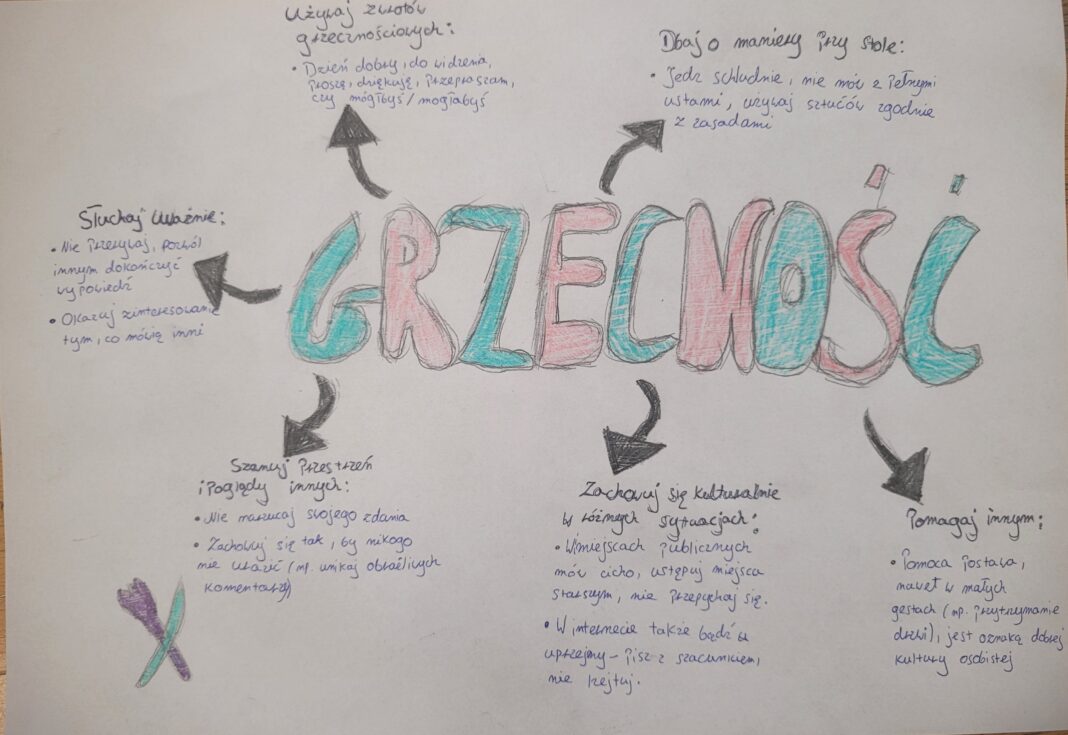 Używaj zwrotów
grzecznościowych:
• Dzień dobry, do widzenia,
proszę, dziękuję, przepraszam,
czy mógłbyś/mogłabyś
Dbaj o maniery przy stole:
• Jedz schludnie, nie mów z pełnymi
ustami, używaj sztućów zgodnie
z zasadami
GRZECNOŚĆ
Słuchaj uważnie:
• Nie przerywaj, pozwól
innym dokończyć
wypowiedź
• Okazuj zinteresowanie
tym, co mówią inni
Szanuj przestrzeń
i poglądy innych:
• Nie narzucaj swojego zdania
• Zachowuj się tak, by nikogo
nie urazić (np. unikaj obraźliwych
komentarzy)
Zachowuj się kulturalnie
w różnych sytuacjach:
• W miejscach publicznych
mów cicho, ustępuj miejsca
starszym, nie przepychaj się.
• W internecie także bądź
uprzejmy - pisz z szacunkiem,
nie hejtuj.
Pomagaj innym:
• Pomoca postawa,
nawet w małych
gestach (np. przytrzymanie
drzwi), jest oznaką dobrej
kultury osobistej